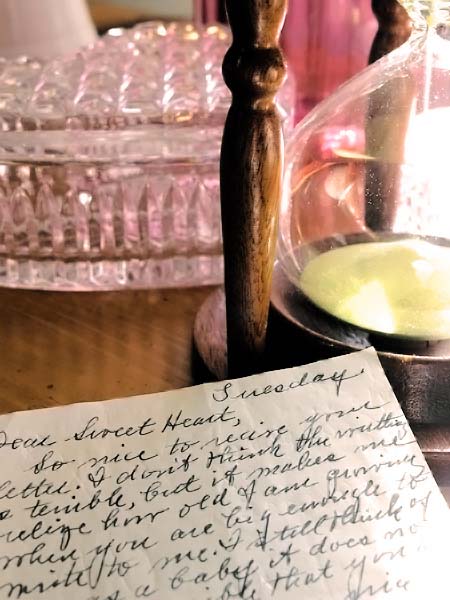 Tuesday.
Dear Sweet Heart,
So nice to recive your
letter. I don't think the writting
is terrible, but it makes me
relize how old I am growing
when you are big enough to
write to me. I still think of
as a baby it does no
that you